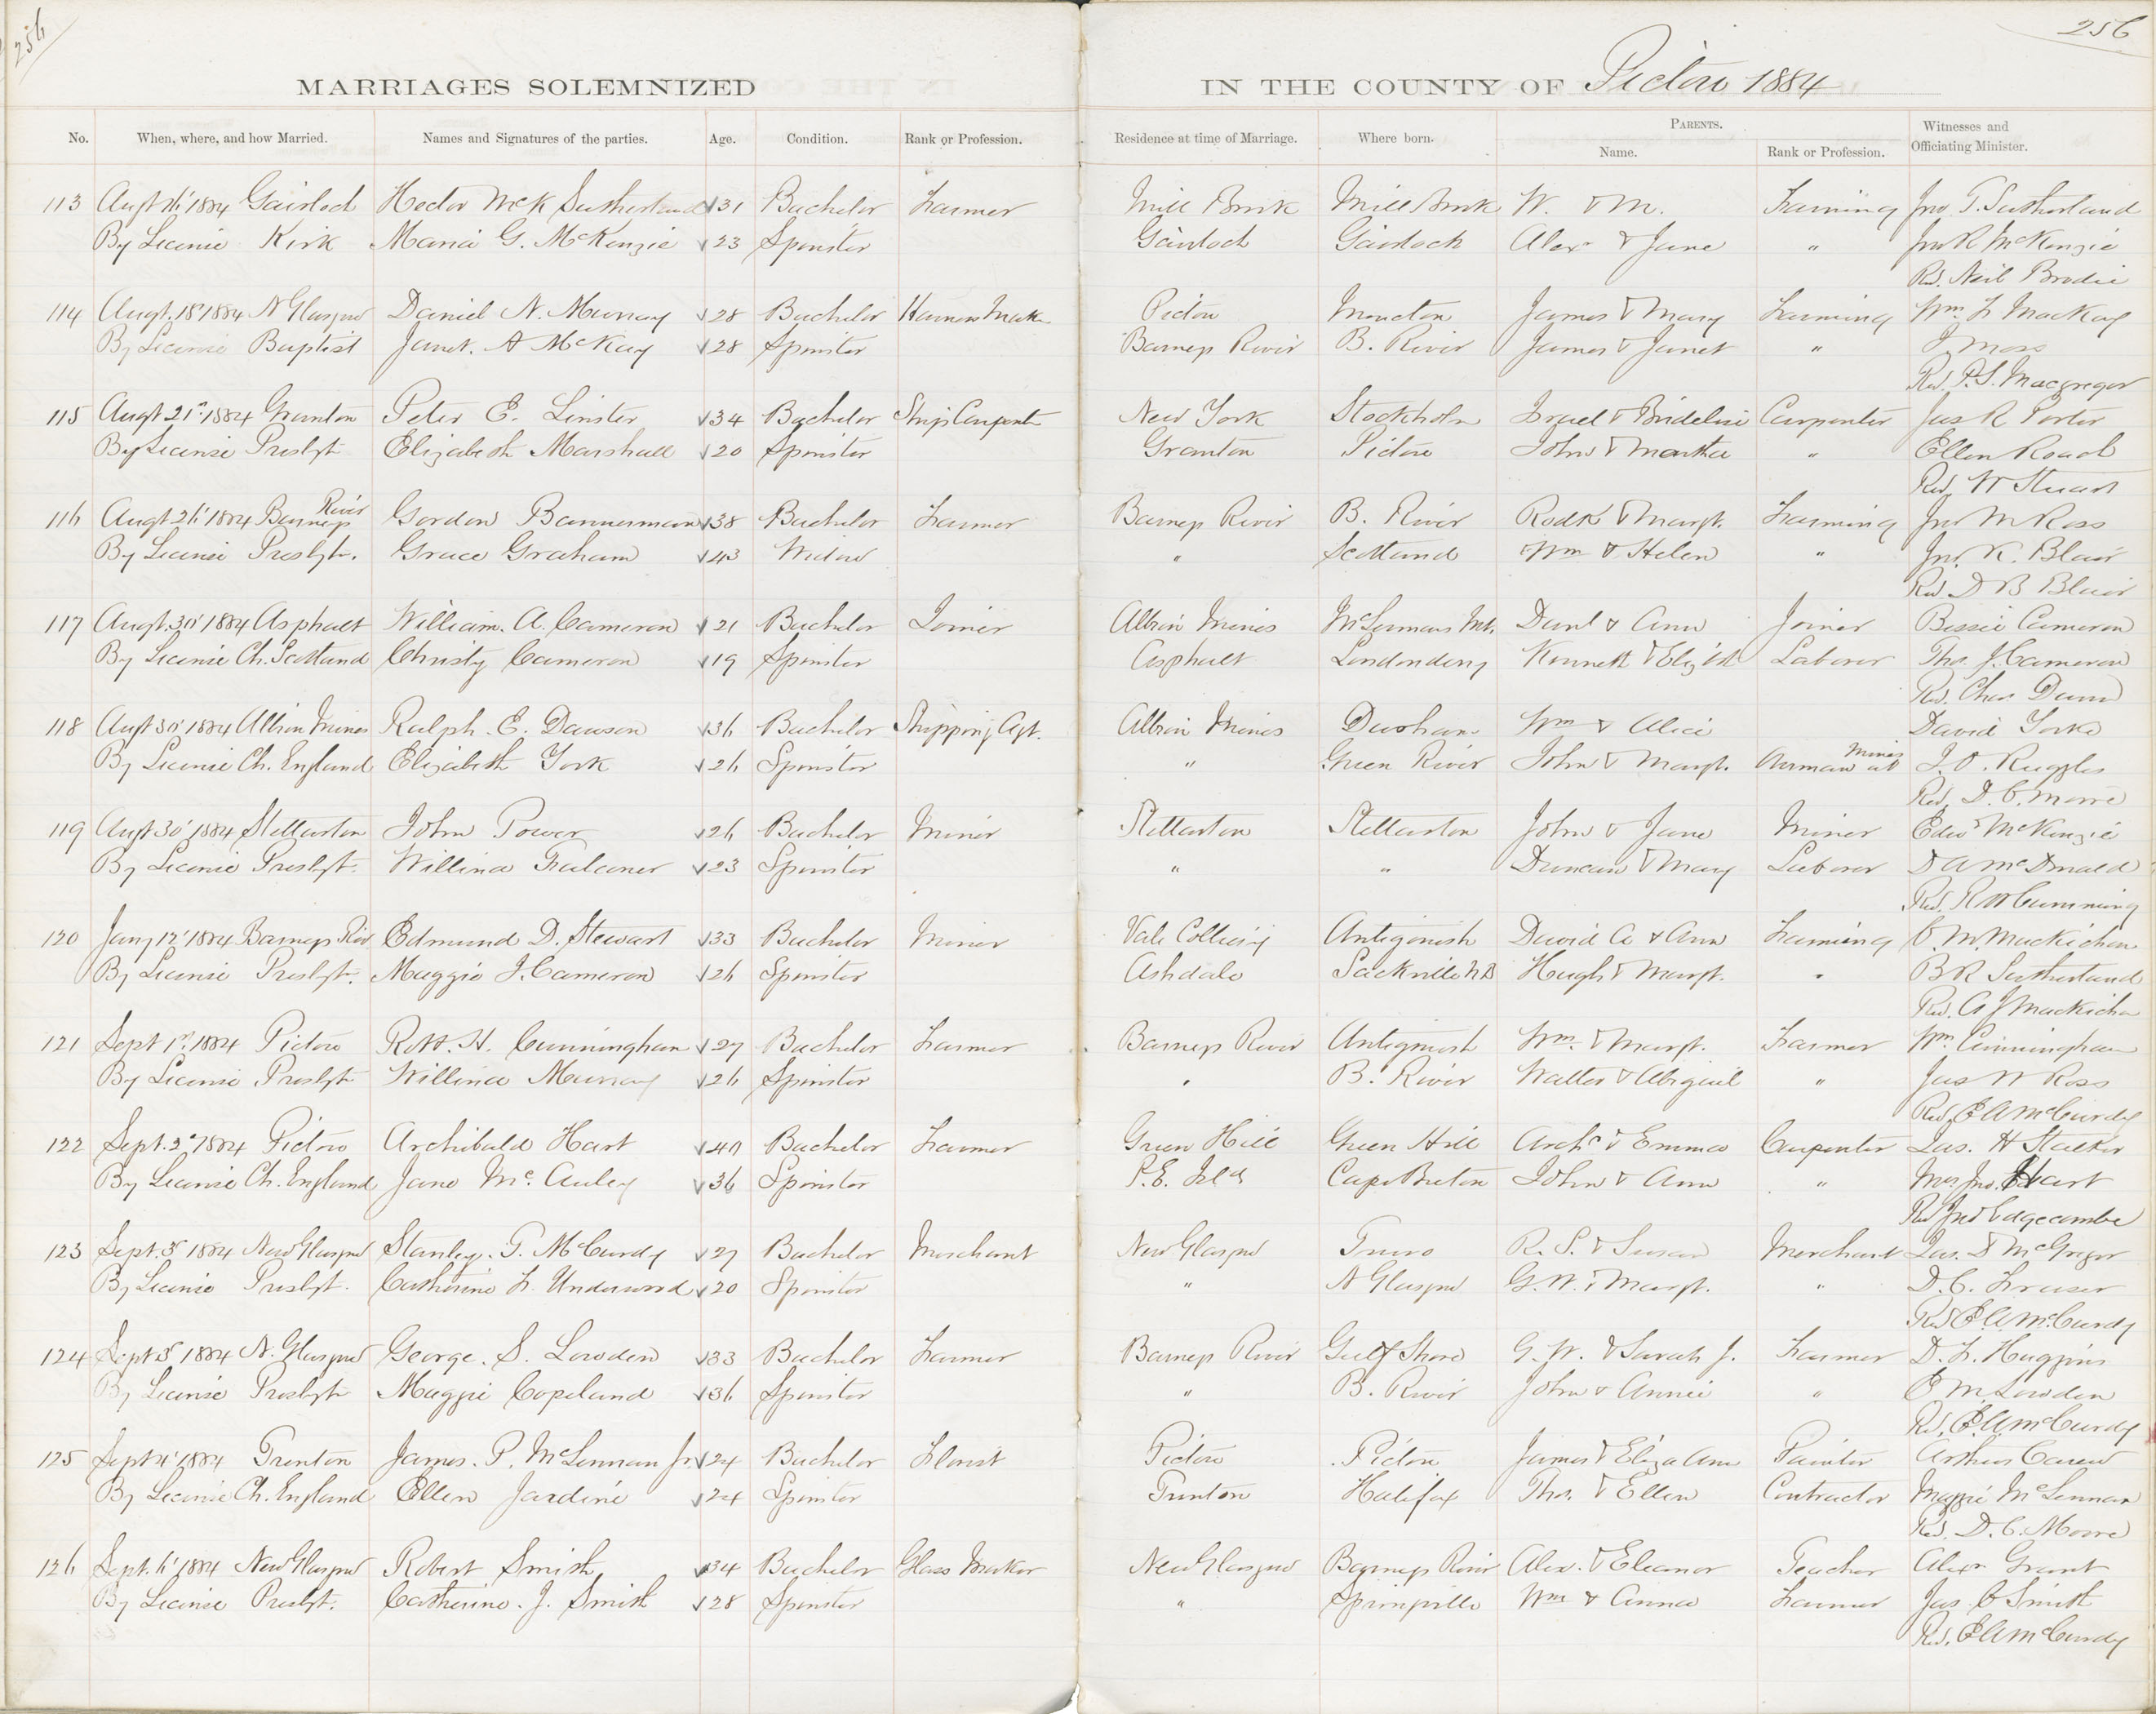 256
256
MARRIAGES SOLEMNIZED IN THE COUNTY OF Pictou 1884
No. When, where, and how Married. Names and Signatures of the parties. Age. Condition. Rank or Profession. Residence at time of Marriage. Where born. PARENTS. Name. Rank or Profession. Witnesses and Officiating Minister.
113 Augt 1884 Gairloch Hector McK Sutherland 31 Bachelor Farmer Mill Brook Mill Brook W. & M. Farming Jno T. Sutherland
By License Kirk Maria G. McKenzie 23 Spinster Gairloch Gairloch Alexr & Jane " Jno R McKenzie
Rd. Neil Brodie
114 Augt. 18' 1884 N Glasgow Daniel N. Murray 28 Bachelor Harness Maker Pictou Moncton James & Mary Farming Wm F MacKay
By License Baptist Janet. A McKay 28 Spinster Barneys River B. River James & Janet " Moss
Revd. P.S. Macgregor
115 Augt 21st 1884 Granton Peter E. Linster 34 Bachelor Ship Carpenter New York Stockholm Israel & Carpenter Jas R Porter
By License Presbyt Elizabeth Marshall 20 Spinster Granton Pictou John & Martha " Ellen Roach
Revd. W Stuart
116 Augt 26' 1884 Barneys River Gordon Bannerman 38 Bachelor Farmer Barneys River B. River Rodk & Margt. Farming Jno M Ross
By License Presbyt. Grace Graham 43 Widow " Scotland Wm & Helen " Jno. K. Blair
Revd D B Blair
117 Augt. 30' 1884 Asphalt William. A. Cameron 21 Bachelor Joiner Albion Mines McLennans Mt. Danl & Ann Joiner Bessie Cameron
By License Ch. Scotland Christy Cameron 19 Spinster Asphalt Londonderry Kenneth & Elizbth Laborer Tho. J. Cameron
Rd. Chas. Dunn
118 Augt 30' 1884 Albion Mines Ralph. E. Dawson 36 Bachelor Shipping Agt. Albion Mines Durham Wm & Alice David York
By License Ch. England Elizabeth York 26 Spinster " Green River John & Margt. at Mines J. O. Ruggles
Revd. D. C. Moore
119 Augt 30' 1884 Stellarton John Power 26 Bachelor Miner Stellarton Stellarton John & Jane Miner Edwd McKenzie
By License Presbyt. Willina Falconer 23 Spinster " " Duncan & Mary Laborer D A McDonald
Rd. R Cumming
120 Jany 12' 1884 Barneys Riv Edmund D. Stewart 33 Bachelor Miner Vale Colliery Antigonish David C & Ann Farming C. M. Mackichan
By License Presbyt. Maggie J. Cameron 26 Spinster Ashdale Sackville NB Hugh & Margt. " B R Sutherland
Rd. A J Mackichan
121 Sept 1st. 1884 Pictou Robt. H. Cunningham 27 Bachelor Farmer Barneys River Antigonish Wm. & Margt. Farmer Wm Cunningham
By License Presbyt Willina Murray 26 Spinster " B. River Walter & Abigail " Jas W Ross
Revd, E A McCurdy
122 Sept. 2d 1884 Pictou Archibald Hart 40 Bachelor Farmer Green Hill Green Hill Archd & Emma Carpenter Jas. H Stalker
By License Ch. England Jane McAuley 36 Spinster P. E. Isld Cape Breton John & Ann " Mrs. Jno. Hart
Rd Jno Edgecombe
123 Sept. 3d 1884 New Glasgow Stanley. G. McCurdy 27 Bachelor Merchant New Glasgow Truro R. S. & Susan Merchant Jas. D McGregor
By License Presbyt. Catherine F. Underwood 20 Spinster " N Glasgow G. W. & Margt. " D. C. Fraser
Rd E A McCurdy
124 Sept 3d 1884 N. Glasgow George. S. Lowden 33 Bachelor Farmer Barneys River Gulf Shore G. W. & Sarah J. Farmer D. F. Huggins
By License Presbyt Maggie Copeland 36 Spinster " B. River John & Annie " E M Lowden
Rd. E A McCurdy
125 Sept 4' 1884 Trenton James. P. McLennan Jr. 24 Bachelor Florist Pictou Pictou James & Eliza Ann Painter Arthur Carew
By License Ch. England Ellen Jardine 24 Spinster Trenton Halifax Tho. & Ellen Contractor Maggie McLennan
Rd. D. C. Moore
126 Sept. 6' 1884 New Glasgow Robert Smith 34 Bachelor Glass Maker New Glasgow Barneys River Alex. & Eleanor Teacher Alexr Grant
By License Presbyt. Catherine. J. Smith 28 Spinster " Springville Wm & Anna Farmer Jas. C Smith
Rd. E A McCurdy